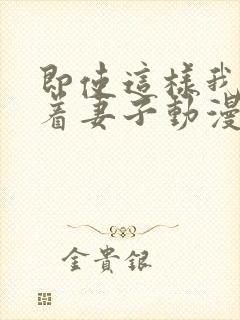 即使這樣我
着妻子動漫
金貴銀